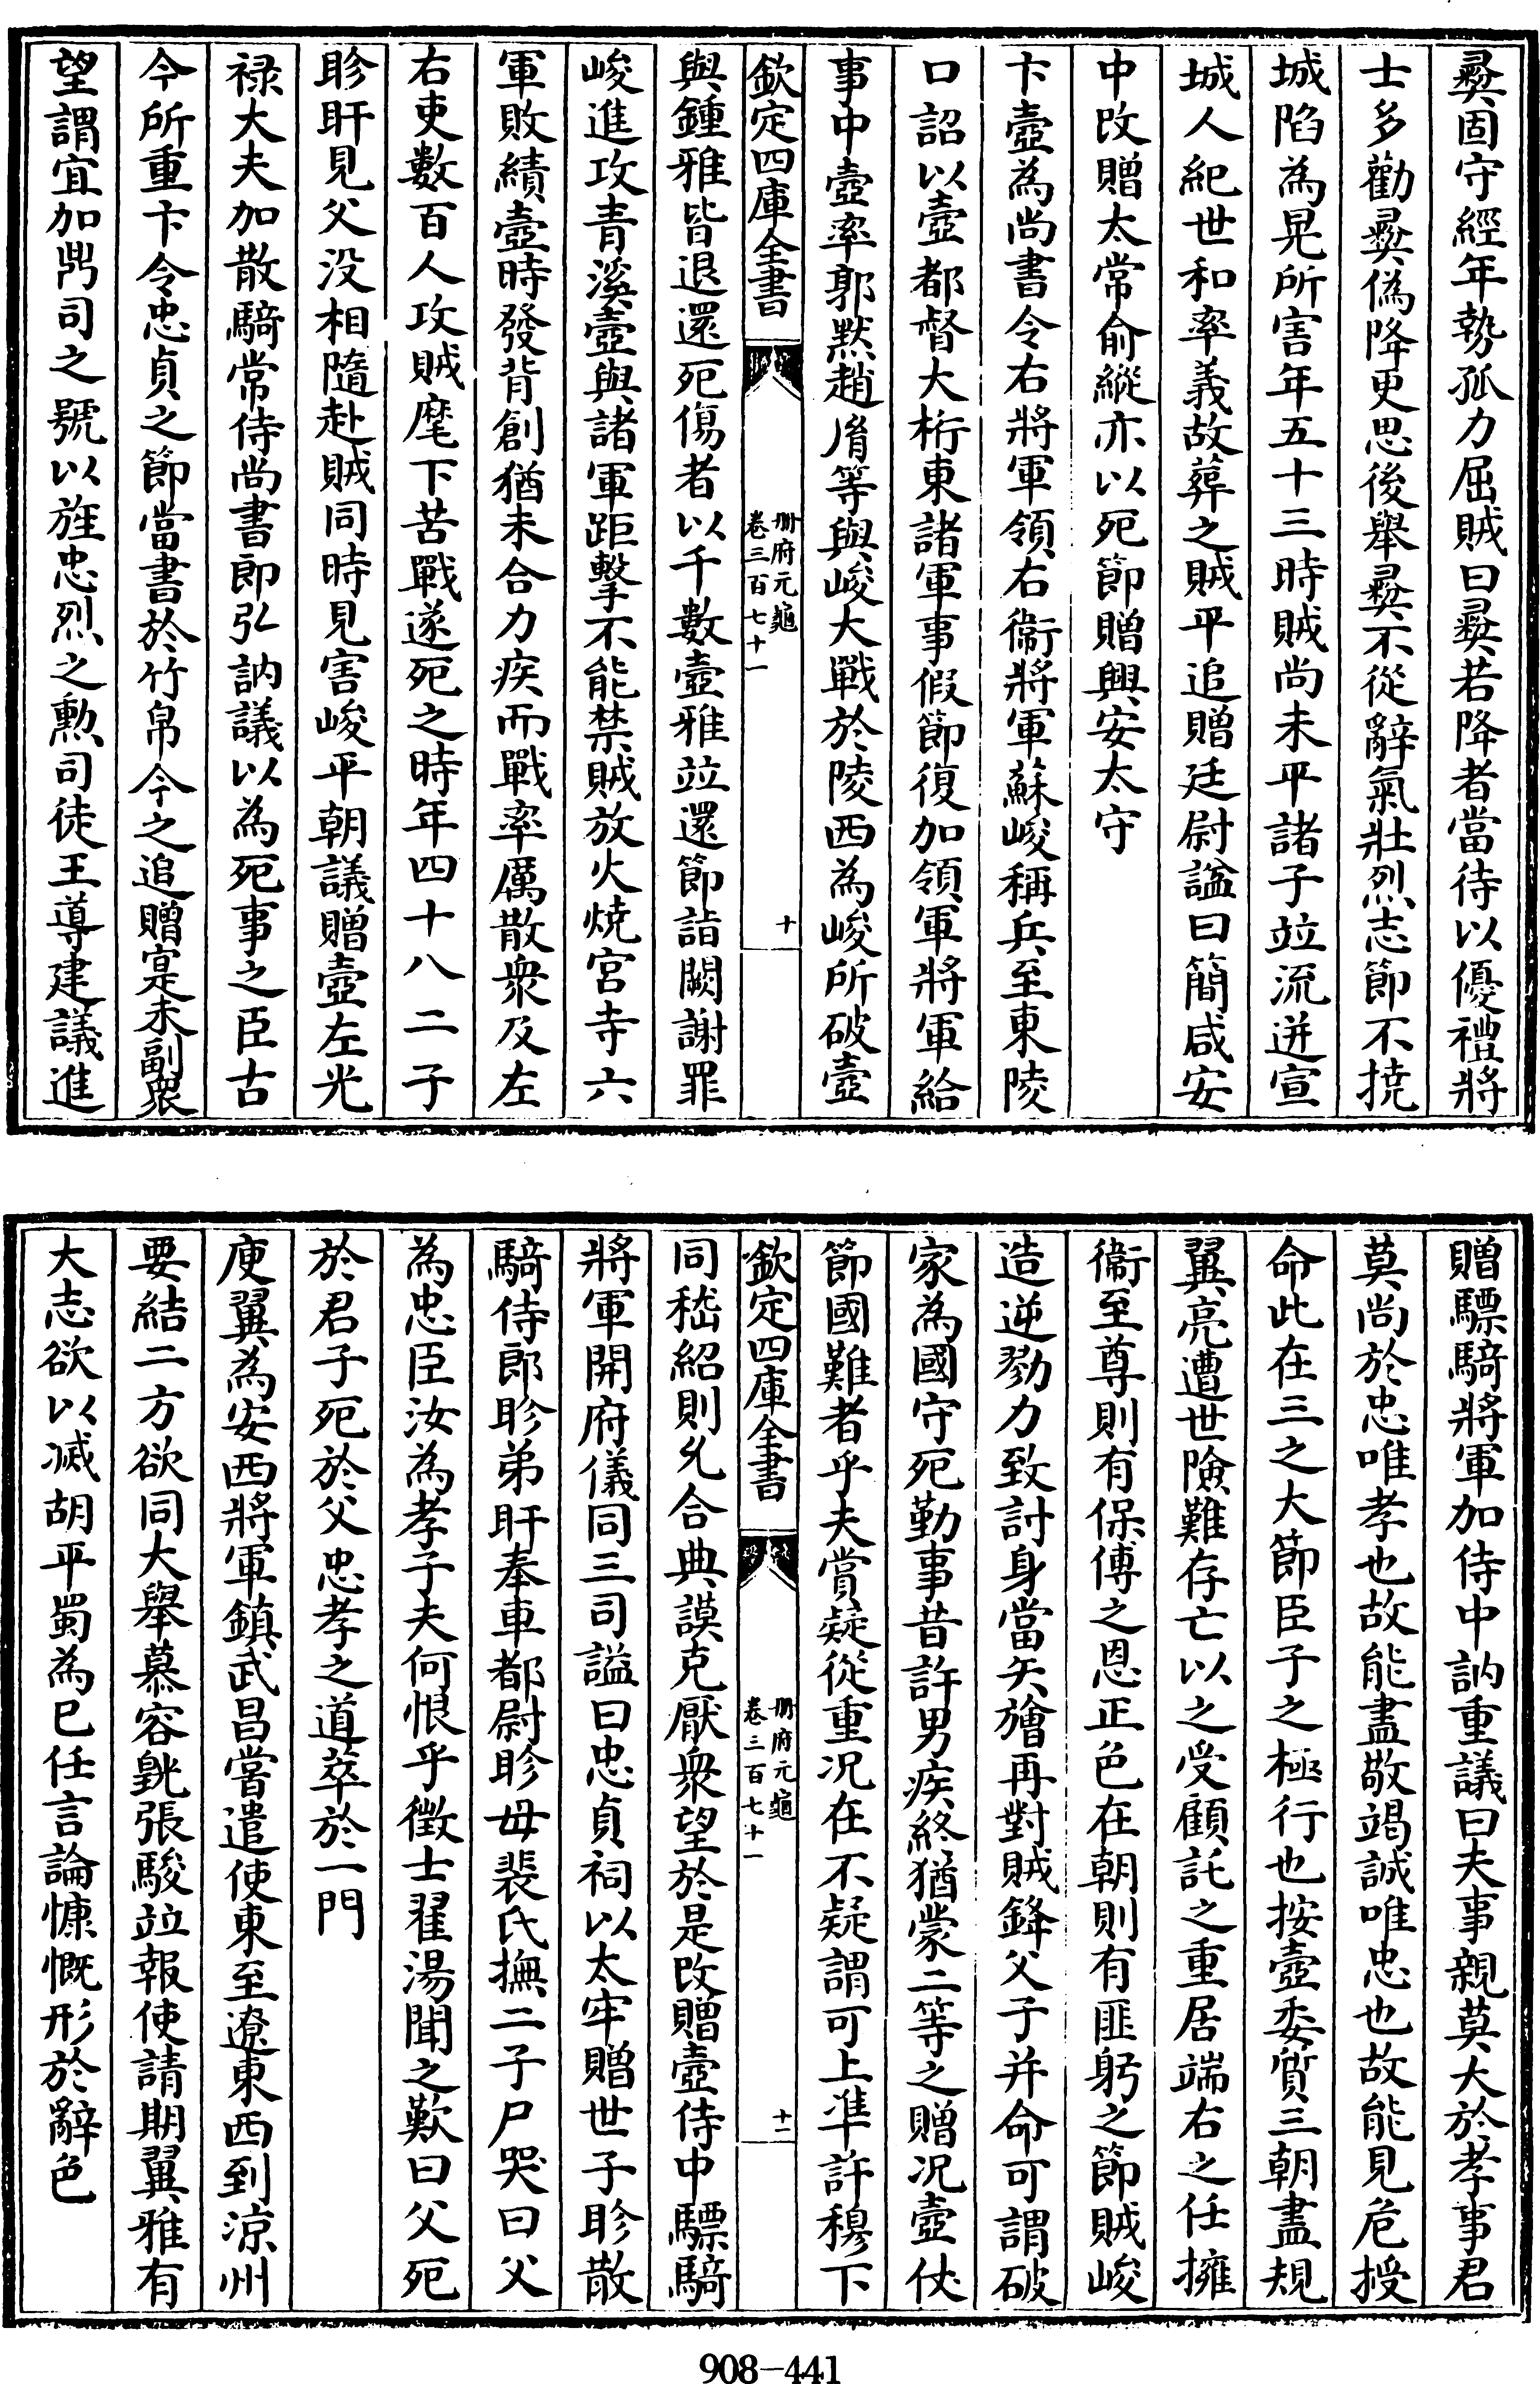 彝固守經年勢孤力屈賊曰彝若降者當待以優禮將
士多勸彝偽降更思後舉彝不從辭氣壯烈志節不撓
城陷為晃所害年五十三時賊尚未平諸子竝流迸宣
城人紀世和率義故葬之賊平追贈廷尉諡曰簡咸安
中改贈太常俞縱亦以死節贈興安太守
卞壼為尚書令右將軍領右衞將軍蘇峻稱兵至東陵
口詔以壼都督大桁東諸軍事假節復加領軍將軍給
事中壼率郭默趙胤等與峻大戰於陵西為峻所破壼
欽定四庫全書
冊府元龜
卷三百七十一
十
與鍾雅皆退還死傷者以千數壼雅竝還節詣闕謝罪
峻進攻青溪壼與諸軍距擊不能禁賊放火燒宮寺六
軍敗績壼時發背創猶未合力疾而戰率厲散衆及左
右吏數百人攻賊麾下苦戰遂死之時年四十八二子
眕盱見父沒相隨赴賊同時見害峻平朝議贈壼左光
祿大夫加散騎常侍尚書郎弘訥議以為死事之臣古
今所重卞令忠貞之節當書於竹帛今之追贈寔未副衆
望謂宜加鼎司之號以旌忠烈之勲司徒王導建議進
贈驃騎將軍加侍中訥重議曰夫事親莫大於孝事君
莫尚於忠唯孝也故能盡敬竭誠唯忠也故能見危授
命此在三之大節臣子之極行也按壼委質三朝盡規
翼亮遭世險難存亡以之受顧託之重居端右之任擁
衞至尊則有保傅之恩正色在朝則有匪躬之節賊峻
造逆勠力致討身當矢旝再對賊鋒父子并命可謂破
家為國守死勤事昔許男疾終猶蒙二等之贈况壼仗
節國難者乎夫賞疑從重况在不疑謂可上準許穆下
欽定四庫全書
冊府元龜
卷三百七十一
十一
同嵇紹則允合典謨克厭衆望於是改贈壼侍中驃騎
將軍開府儀同三司諡曰忠貞祠以太牢贈世子眕散
騎侍郎眕弟盱奉車都尉眕母裴氏撫二子尸哭曰父
為忠臣汝為孝子夫何恨乎徵士翟湯聞之歎曰父死
於君子死於父忠孝之道萃於一門
庾翼為安西將軍鎮武昌嘗遣使東至遼東西到涼州
要結二方欲同大舉慕容皝張駿竝報使請期翼雅有
大志欲以滅胡平蜀為已任言論慷慨形於辭色
908-441